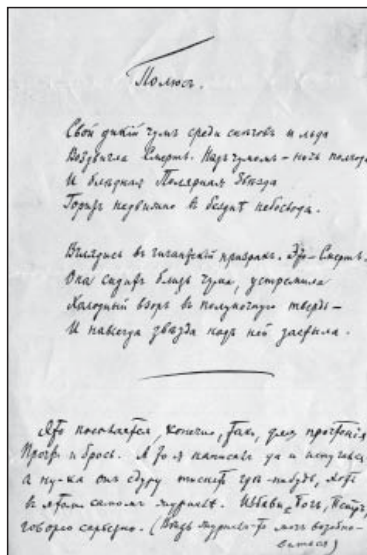 Полюсъ.
Свой дикій чумъ среди снѣговъ и льда
Воздвигла Смерть. Надъ чумомъ – ночь полгода.
И блѣдная Полярная Звѣзда
Горитъ недвижимо в безднѣ небосвода.
Вглядись въ гигантскій призракъ. Это – Смерть.
Она сидитъ близь чума, устремила
Холодный взоръ въ полуночную твердь –
И навсегда звѣзда надъ ней застыла.
Это посылается, конечно, такъ, для прочтенія
и брось. А то я написалъ да и испугался
а ну-ка онъ сдуру тиснетъ гдѣ-нибудь, хотя
в этомъ самомъ журналѣ. Избави Богъ,
говорю серьезно. (Вѣдь журналъ-то могъ возобно-
виться)